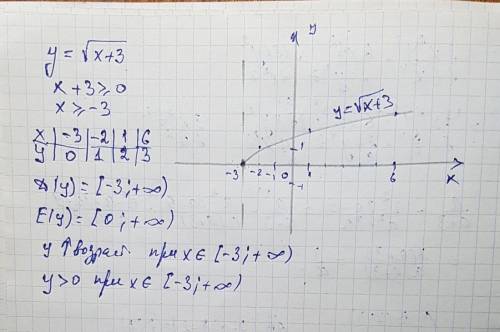 y = √x+3
x + 3 ⩾ 0
x ⩾ -3
x | -3 | -2 | 1 | 6
y | 0 | 1 | 2 | 3
D(y) = [-3; +∞)
E(y) = [0; +∞)
y ↑ возраст. при x ∈ [-3; +∞)
y > 0 при x ∈ [-3; +∞)
y
y=√x+3
1
-3 -2 -1 0 1 6
-1
x